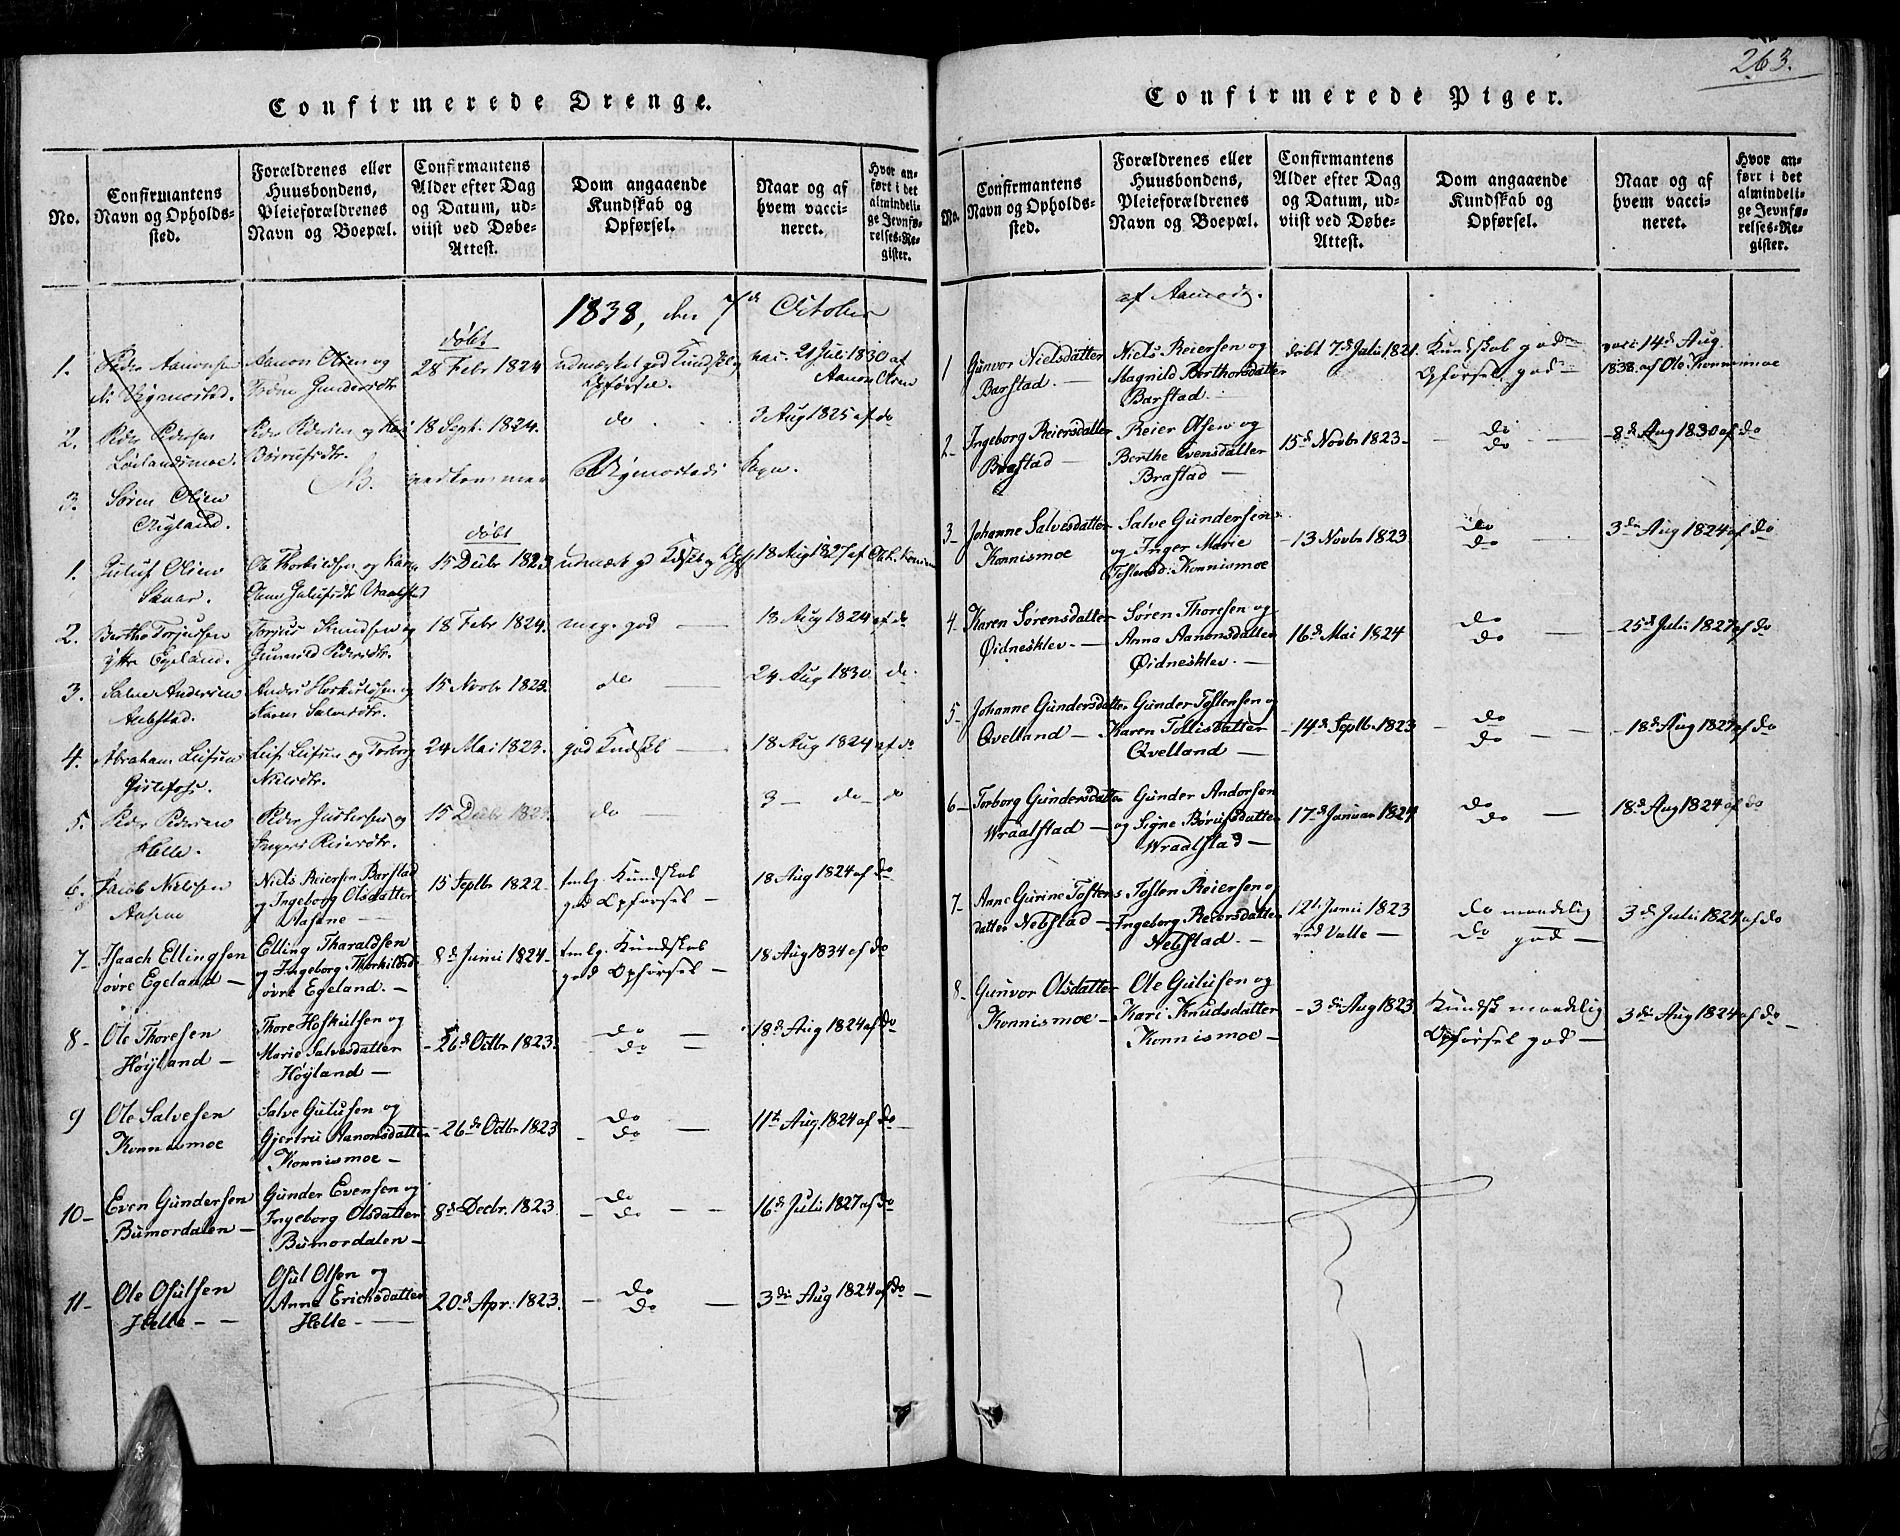 263.
Confirmerede Drenge.
No.
Confirmantens Navn og Opholds-sted.
Forældrenes eller Huusbondens, Pleieforældrenes Navn og Boepæl.
Confirmantens Alder efter Dag og Datum, ud-viist ved Døbe-Attest.
Dom angaaende Kundskab og Opførsel.
Naar og af hvem vacci-neret.
Hvor an-ført i det almindeli-ge Jevnfø-relses-Re-gister.
1838, den 7de October
døbt
1. Peder Aanonsen Aanon Olsen og 28 Febr 1824 udmærket god Kundskb vac. 21 Juli 1830 af
N. Øgmostad. Gundersdtr Opførsel. Aanon Olsen
2. Peder Pedersen Peder Pedersen og 18 Sept. 1824. do 3 Aug 1825 af do
Løilandsmoe. Børufsdtr.
NB. vedkommer Øgmostads Sogn.
3. Søren Olsen
Øigland.
døbt
1. Guluf Olsen Ole Thorkildsen og 15 Decbr 1823 18 Aug 1827 af
Skaar. Gulufsdtr Vraalstad
2. Berthe Torjussen Torjus Knudsen og 18 Febr 1824. meg. god — 18 Aug 1824 af do
ytre Egeland. Gunvold Pedersdtr.
3. Salve Andersen Anders og 15 Novbr 1823. do — 24 Aug 1830 do.
Nebstad. Karen Salvesdtr.
4. Abraham Leifsen Leif Leifsen og Torborg 24 Mai 1823. god Kundskb — 18 Aug 1824 af do
Nielsdtr.
5. Peder Pedersen Peder og 15 Decbr do — 3 — do — do
Helle. Reiersdtr.
6. Jacob Nielssen Niels Reiersen Barstad 15 Septbr 1822. tmlg. Kundskab 18 Aug 1824 af do
Aasene og Ingeborg Olsdatter god Opførsel —
Aasene —
7- Isaach Ellingsen Elling Tharaldsen 8de Junii 1824- tmlg. Kundskab 18 Aug 1834 af do
øvre Egeland — og Ingeborg Thorkildsd. god Opførsel —
øvre Egeland. —
8- Ole Thoresen Thore Hoskulsen og -26de Octbr 1823. do — 18de Aug 1824 af do
Høÿland — Marie Salvesdatter do —
Høÿland —
9 Ole Salvesen Salve Gulufsen og -26de Octbr 1823 do — 11te Aug 1824 af do
Konnismoe Gjertru Aanonsdatter do
Konnismoe —
10- Even Gundersen Gunder Evensen og 8de Decbr. 1823. do — 16de Julii 1827 af do
Bumordalen — Ingeborg Olsdatter do
Bumordalen —
11- Ole Osulsen Osul Olsen og 20de Apr. 1823. do — 3die Aug 1824 af do —
Helle — Anne Erichsdatter do
Helle —
Confirmerede Piger.
No.
Confirmantens Navn og Opholds-sted.
Forældrenes eller Huusbondens, Pleieforældrenes Navn og Boepæl.
Confirmantens Alder efter Dag og Datum, ud-viist ved Døbe-Attest.
Dom angaaende Kundskab og Opførsel.
Naar og af hvem vacci-neret.
Hvor an-ført i det almindeli-ge Jevnfø-relses-Re-gister.
1 Gunvor Nielsdatter Niels Reiersen og døbt 7de Julii 1821. Kundskab god vacc: 14de Aug.
Barstad. — Magnild Berthorsdatter Opførsel god — 1838. af Ole Konnismoe
Barstad —
2- Ingeborg Reiersdatter Reier Olsen og 15de Novbr 1823- do — 8de Aug 1830 af do
Brastad — Berthe Evensdatter do
Brastad —
3- Johanne Salvesdatter Salve Gundersen -13 Novbr 1823 do 3die Aug 1824 af do
Konnismoe og Inger Marie do
Tostensd: Konnismoe
4. Karen Sørensdatter Søren Thoresen og 16de Mai 1824 do — 25de Julii 1827 af do
Øidnesklev. — Anna Aanonsdatter do
Øidnesklev. —
5- Johanne Gundersdatter Gunder Tostensen og -14de Septbr 1823 do — 18de Aug 1827 af do
Qvelland — Karen Tollisdatter do
Qvelland —
6- Torborg Gundersdatter Gunder Andorsen 17de Januar 1824 do — 18de Aug 1824 af do
Wraalstad — og Signe Børufsdatter do
Wraalstad —
7- Anne Gurine Tostens Tosten Reiersen og 12te Junii 1823 do maadelig 3de Julii 1824 af do
datter Nebstad — Ingeborg Reiersdatter ved Valle — do god —
Nebstad. —
8- Gunvor Olsdatter Ole Gulufsen og -3die Aug 1823 Kundsk maadelig 3die Aug 1824 af do —
Konnismoe — Kari Knudsdatter Opførsel god —
Konnismoe —